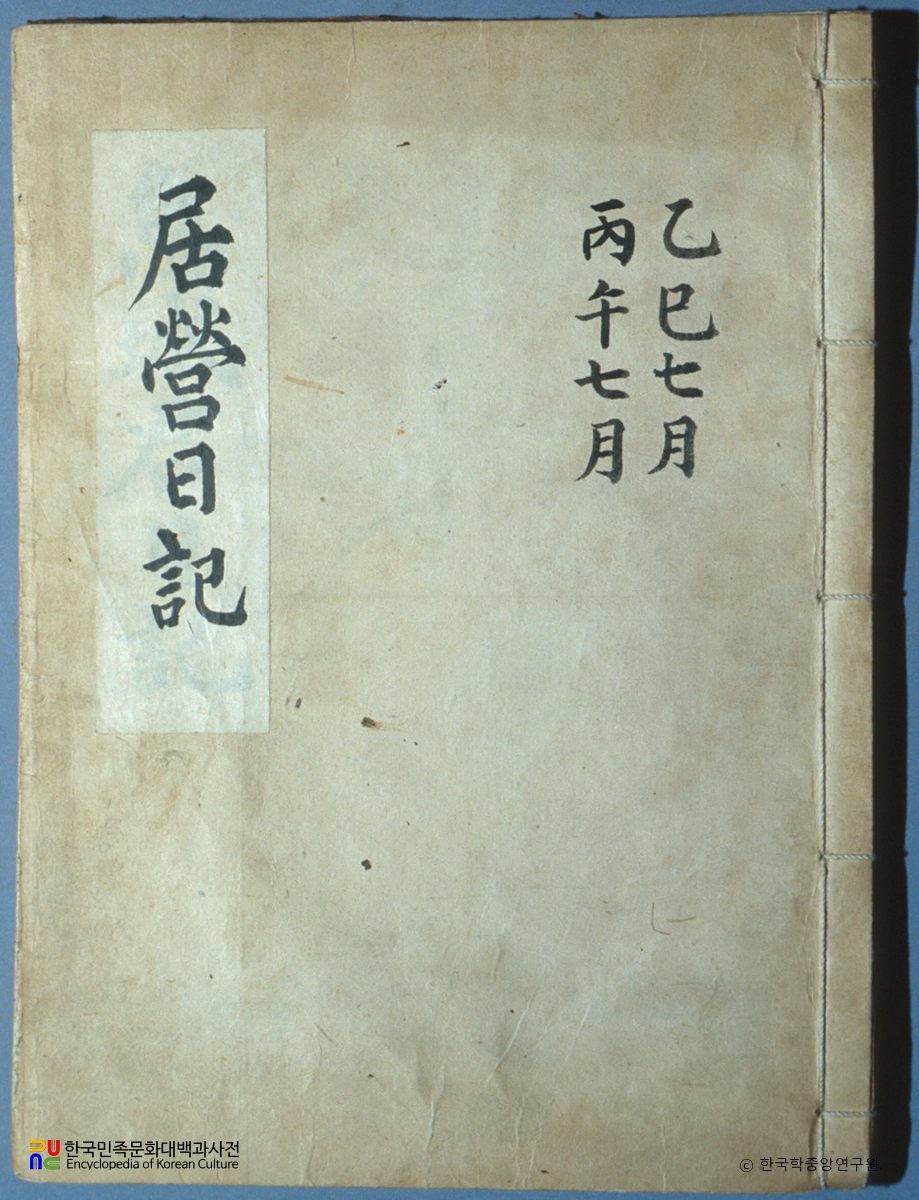 乙巳七月
丙午七月
居營日記
한국민족문화대백과사전
Encyclopedia of Korean Culture
© 한국학중앙연구원.